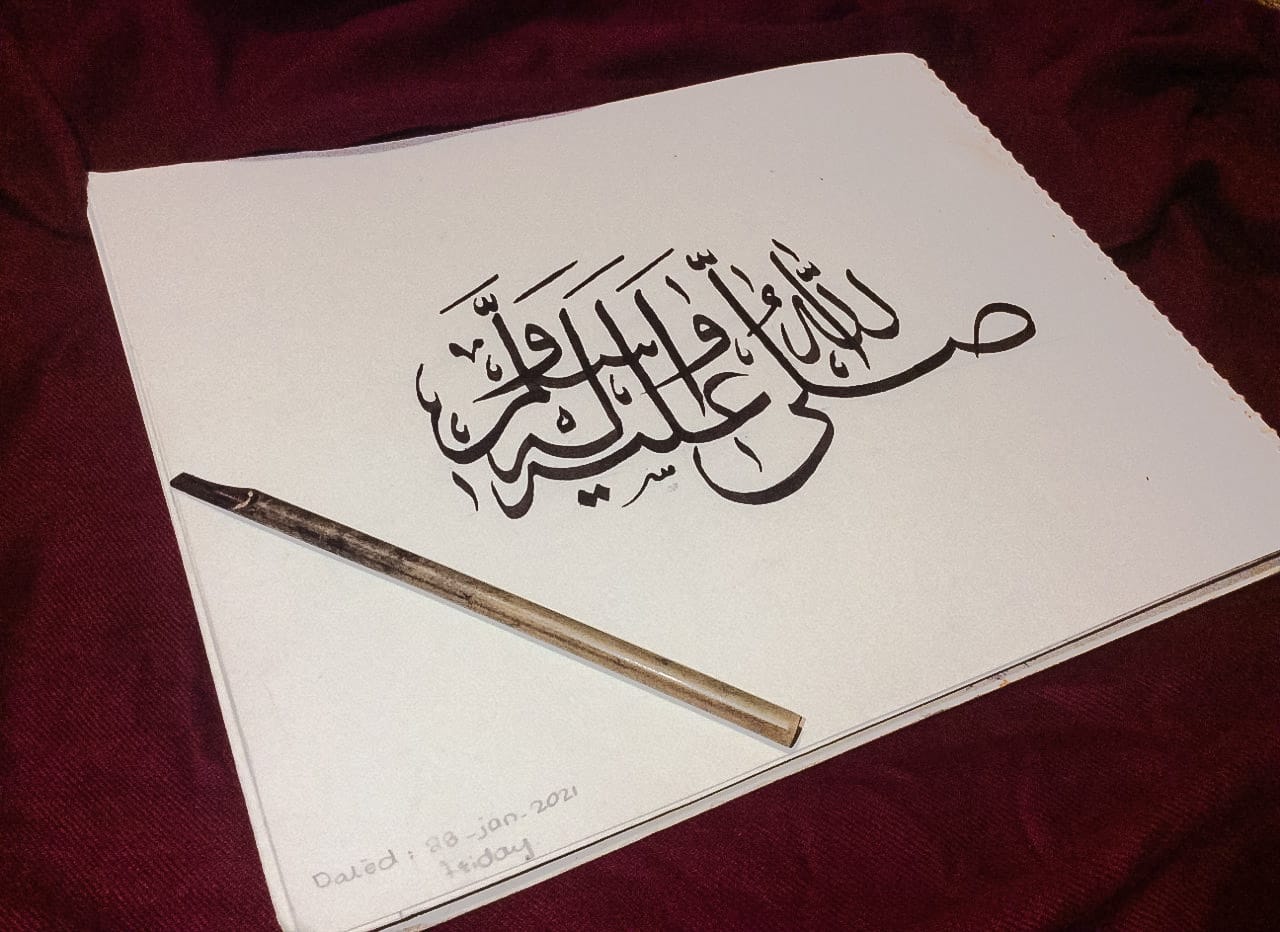 صلى اللهُ عليه وآله وسلَّم
Dated : 28-jan-2021
friday